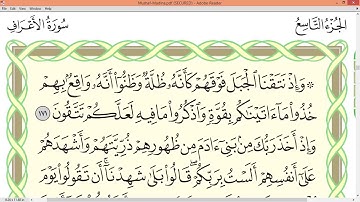 Mushaf-Madina.pdf (SECURED) - Adobe Reader
الجُزْءُ التَّاسِعُ
سُورَةُ الأَعْرَافِ
۞ وَإِذْ نَتَقْنَا ٱلْجَبَلَ فَوْقَهُمْ كَأَنَّهُۥ ظُلَّةٌ وَظَنُّوٓا۟ أَنَّهُۥ وَاقِعٌۢ بِهِمْ
خُذُوا۟ مَآ ءَاتَيْنَٰكُم بِقُوَّةٍ وَٱذْكُرُوا۟ مَا فِيهِ لَعَلَّكُمْ تَتَّقُونَ ١٧١
وَإِذْ أَخَذَ رَبُّكَ مِنۢ بَنِىٓ ءَادَمَ مِن ظُهُورِهِمْ ذُرِّيَّتَهُمْ وَأَشْهَدَهُمْ
عَلَىٰٓ أَنفُسِهِمْ أَلَسْتُ بِرَبِّكُمْ ۖ قَالُوا۟ بَلَىٰ ۛ شَهِدْنَآ ۛ أَن تَقُولُوا۟ يَوْمَ